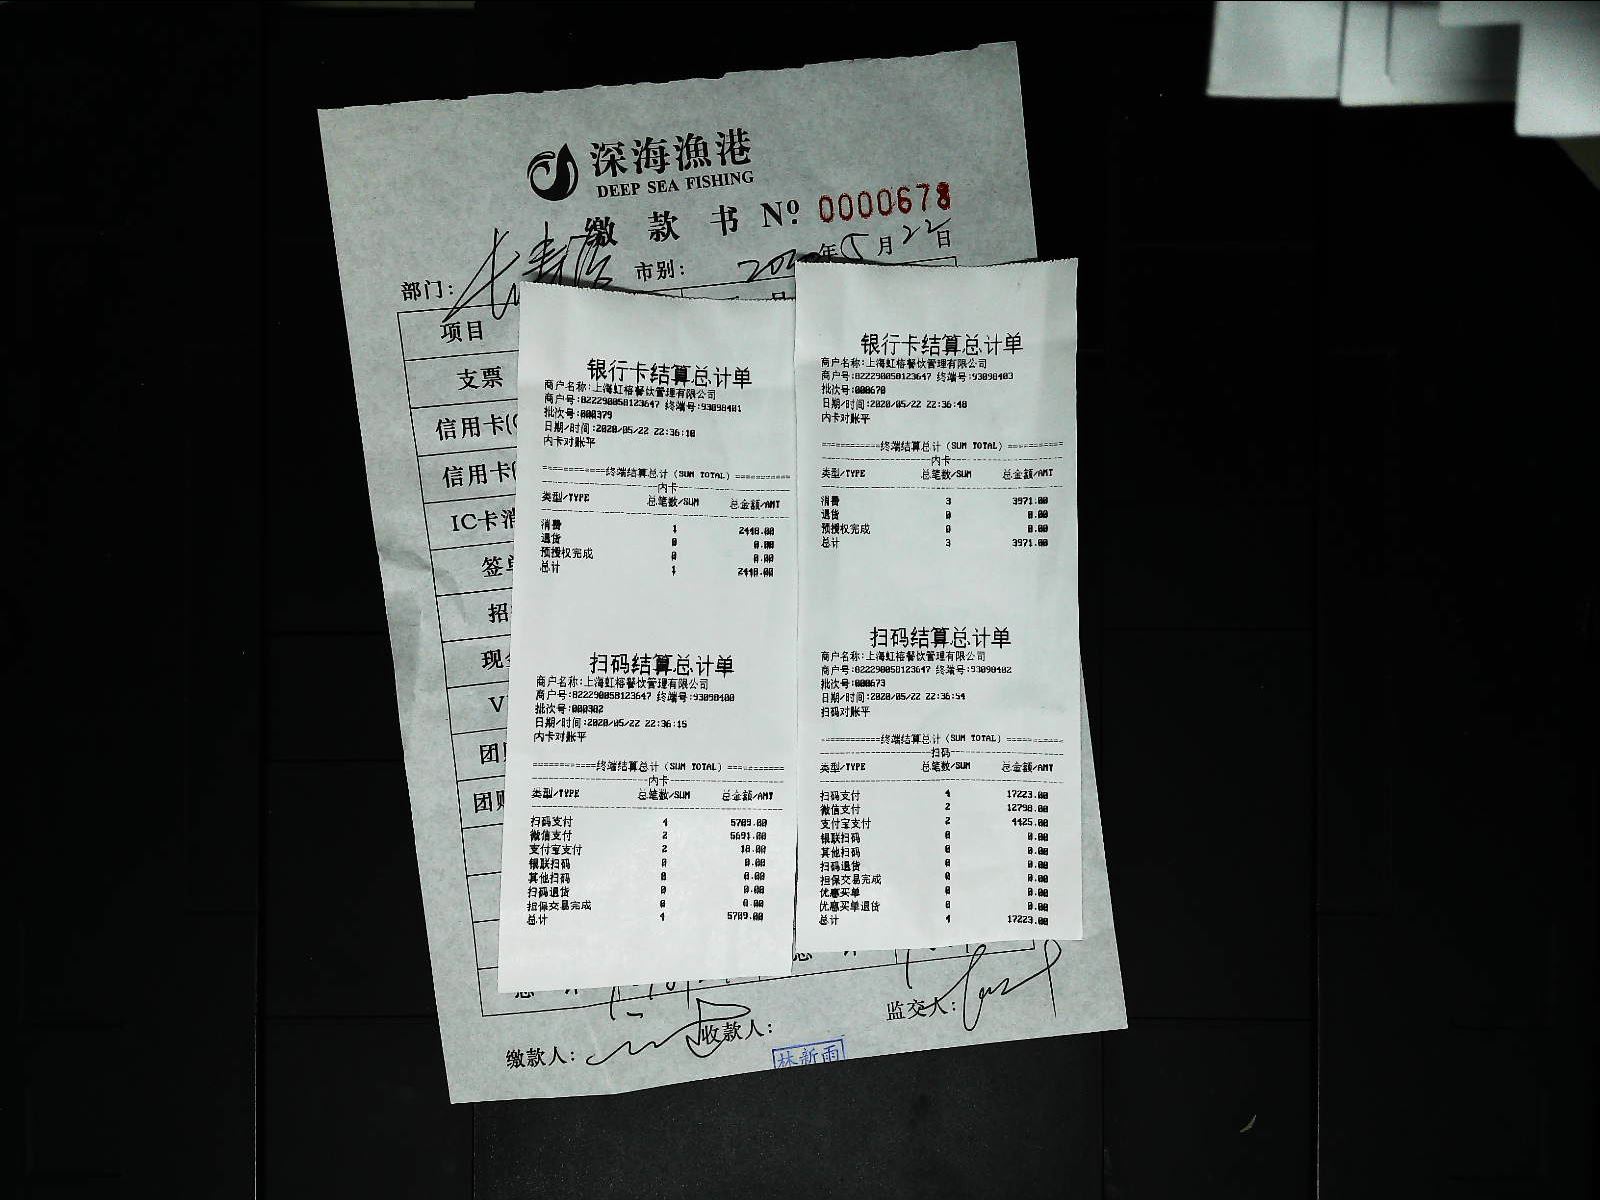 深海漁港
DEEP SEA FISHING
缴 款 书 Nº: 0000678
部门: 市别: 2020年5月22日
项目
支票
信用卡(
信用卡(
IC卡消
签单
招
现金
V
团购
团购
银行卡结算总计单
商户名称:上海虹榕餐饮管理有限公司
商户号:822290058123647 终端号:93098401
批次号:000379
日期/时间:2020/05/22 22:36:10
内卡对账平
============终端结算总计(SUM TOTAL)============
内卡
类型/TYPE 总笔数/SUM 总金额/AMT
消费 1 2448.00
退货 0 0.00
预授权完成 0 0.00
总计 1 2448.00
扫码结算总计单
商户名称:上海虹榕餐饮管理有限公司
商户号:822290058123647 终端号:93098400
批次号:000382
日期/时间:2020/05/22 22:36:15
内卡对账平
============终端结算总计(SUM TOTAL)============
内卡
类型/TYPE 总笔数/SUM 总金额/AMT
扫码支付 4 5709.00
微信支付 2 5691.00
支付宝支付 2 18.00
银联扫码 0 0.00
其他扫码 0 0.00
扫码退货 0 0.00
担保交易完成 0 0.00
总计 4 5709.00
银行卡结算总计单
商户名称:上海虹榕餐饮管理有限公司
商户号:822290058123647 终端号:93098403
批次号:000670
日期/时间:2020/05/22 22:36:48
内卡对账平
============终端结算总计(SUM TOTAL)============
内卡
类型/TYPE 总笔数/SUM 总金额/AMT
消费 3 3971.00
退货 0 0.00
预授权完成 0 0.00
总计 3 3971.00
扫码结算总计单
商户名称:上海虹榕餐饮管理有限公司
商户号:822290058123647 终端号:93098402
批次号:000673
日期/时间:2020/05/22 22:36:54
扫码对账平
============终端结算总计(SUM TOTAL)============
扫码
类型/TYPE 总笔数/SUM 总金额/AMT
扫码支付 4 17223.00
微信支付 2 12798.00
支付宝支付 2 4425.00
银联扫码 0 0.00
其他扫码 0 0.00
扫码退货 0 0.00
担保交易完成 0 0.00
优惠买单 0 0.00
优惠买单退货 0 0.00
总计 4 17223.00
缴款人: 收款人: 监交人:
林新雨